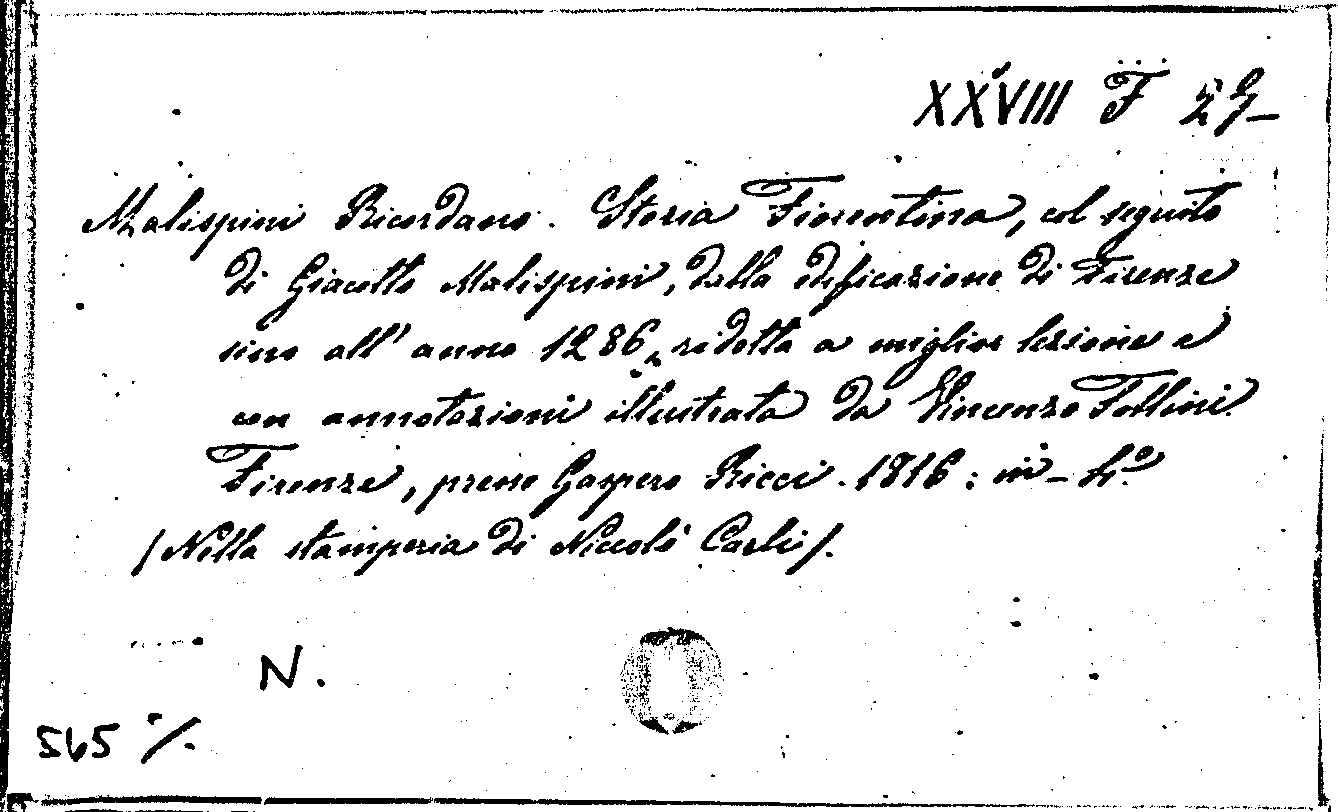 XXVIII F 27
Malispini Ricordano. Storia Fiorentina, col seguito
di Giacotto Malispini, dalla edificazione di Firenze
sino all' anno 1286, ridotta a miglior lezione e
con annotazioni illustrata da Vincenzo Follini
Firenze, presso Gaspero Ricci. 1816: in-4.o
(Nella stamperia di Niccolò Carli).
N.
565 %.